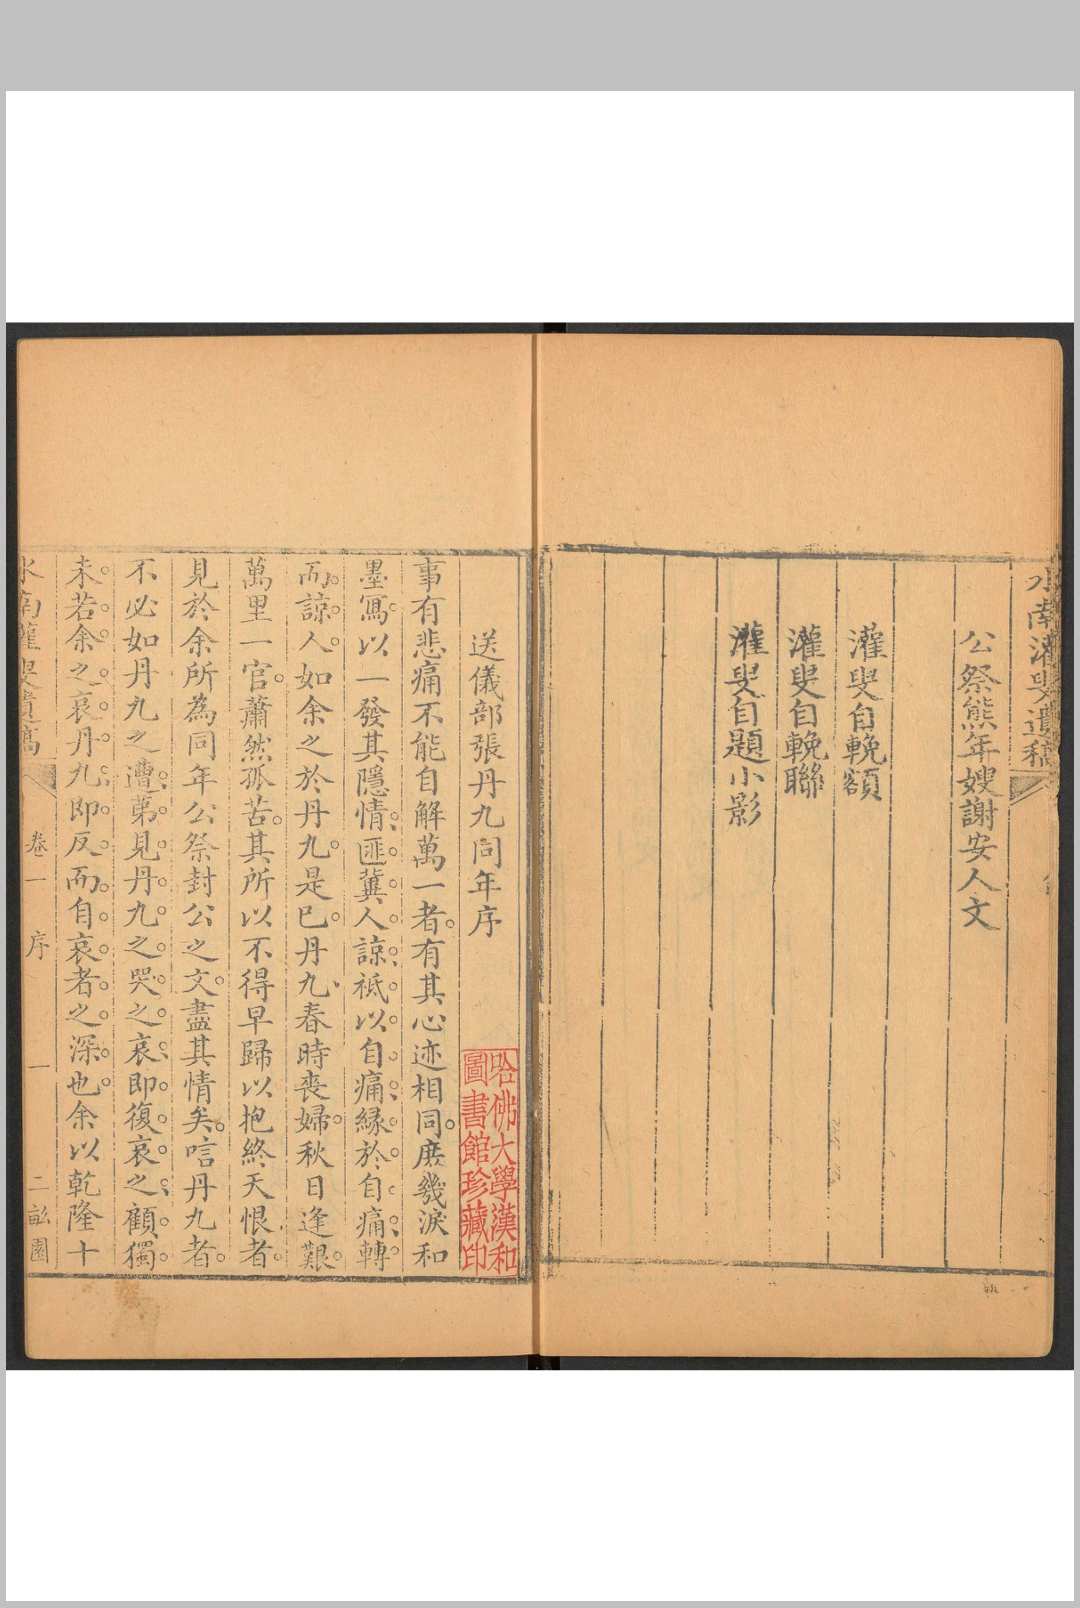 水南灌叟遺稿
公祭熊年嫂謝安人文
灌叟自輓額
灌叟自輓聯
灌叟自題小影
哈佛大學漢和
圖書館珍藏印
送儀部張丹九同年序
事有悲痛不能自解萬一者有其心迹相同庻幾淚和
墨寫以一發其隱情匪冀人諒祗以自痛緣於自痛轉
而諒人如余之於丹九是已丹九春時喪婦秋日逢艱
萬里一官蕭然孤苦其所以不得早歸以抱終天恨者
見於余所為同年公祭封公之文盡其情矣唁丹九者
不必如丹九之遭苐見丹九之哭之哀即復哀之顧獨
未若余之哀丹九即反而自哀者之深也余以乾隆十
水南灌叟遺稿
卷一
序
一
二畝園